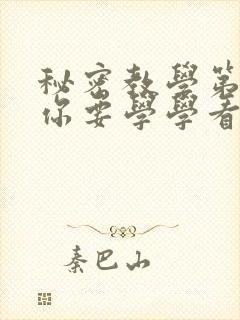 秘密教學第
你要學學看
秦巴山